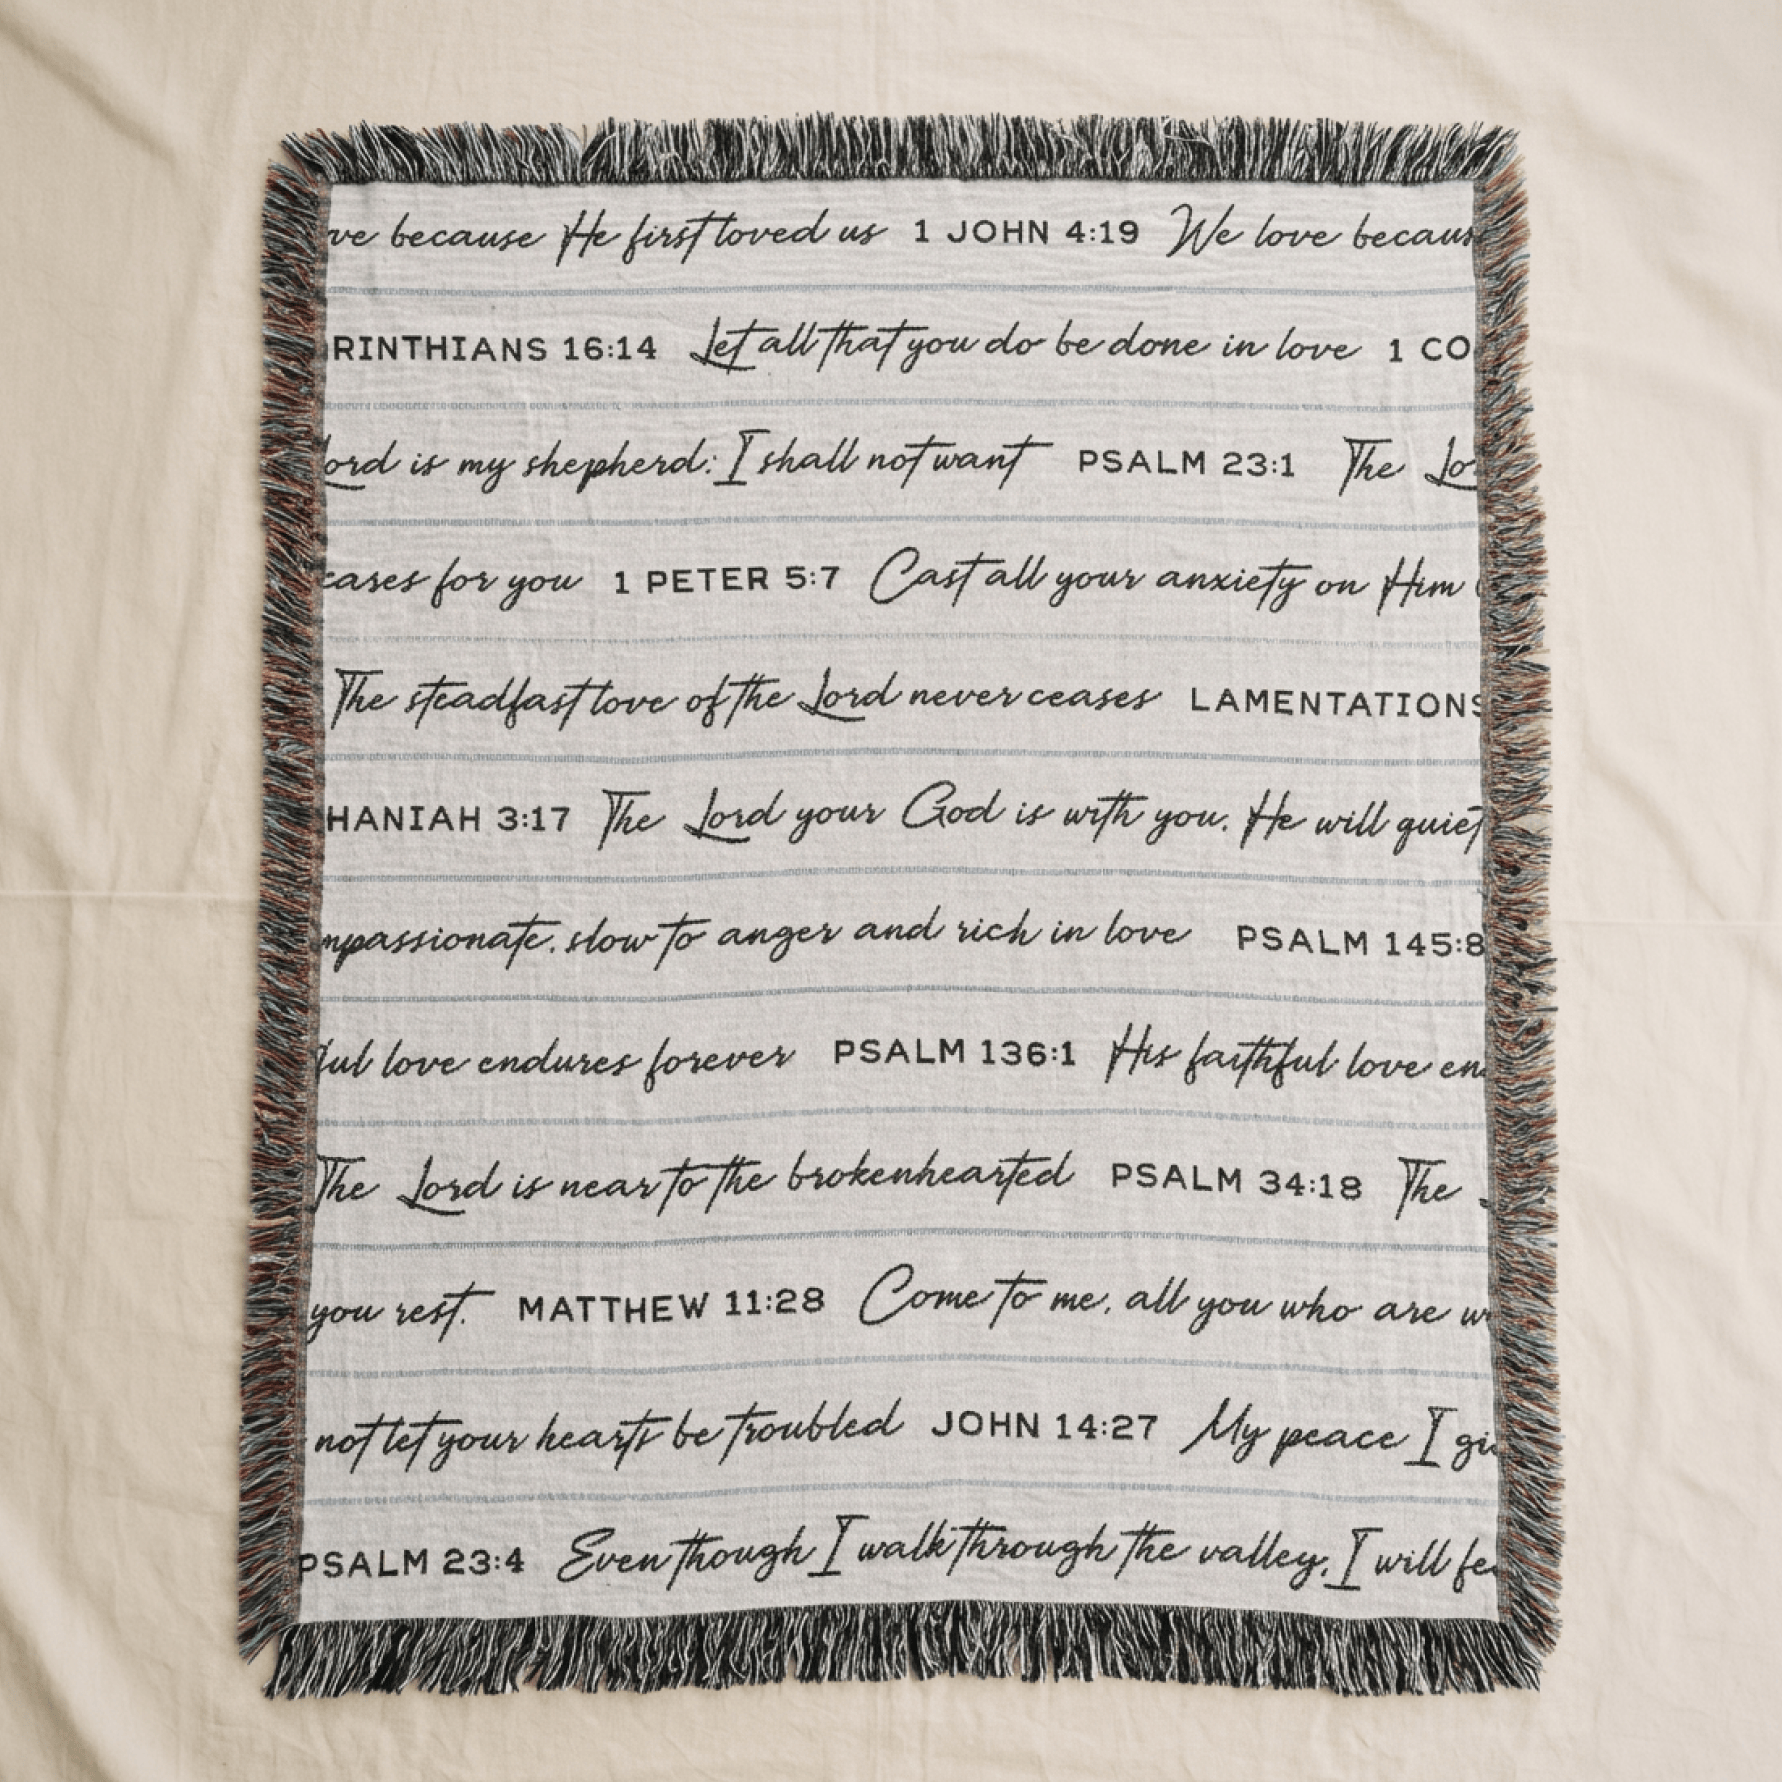 ve because He first loved us 1 JOHN 4:19 We love becaus
RINTHIANS 16:14 Let all that you do be done in love 1 CO
ord is my shepherd; I shall not want PSALM 23:1 The Lo
cares for you 1 PETER 5:7 Cast all your anxiety on Him
The steadfast love of the Lord never ceases LAMENTATIONS
HANIAH 3:17 The Lord your God is with you. He will quiet
mpassionate, slow to anger and rich in love PSALM 145:8
ful love endures forever PSALM 136:1 His faithful love en
The Lord is near to the brokenhearted PSALM 34:18 The
you rest. MATTHEW 11:28 Come to me, all you who are w
not let your hearts be troubled JOHN 14:27 My peace I gi
PSALM 23:4 Even though I walk through the valley, I will fe